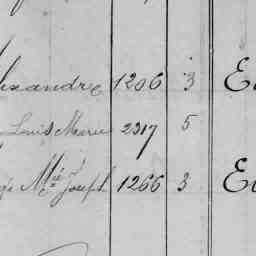 lexandre 1206 3
Louis Marie 2317 5
Mie Joseph 1266 3